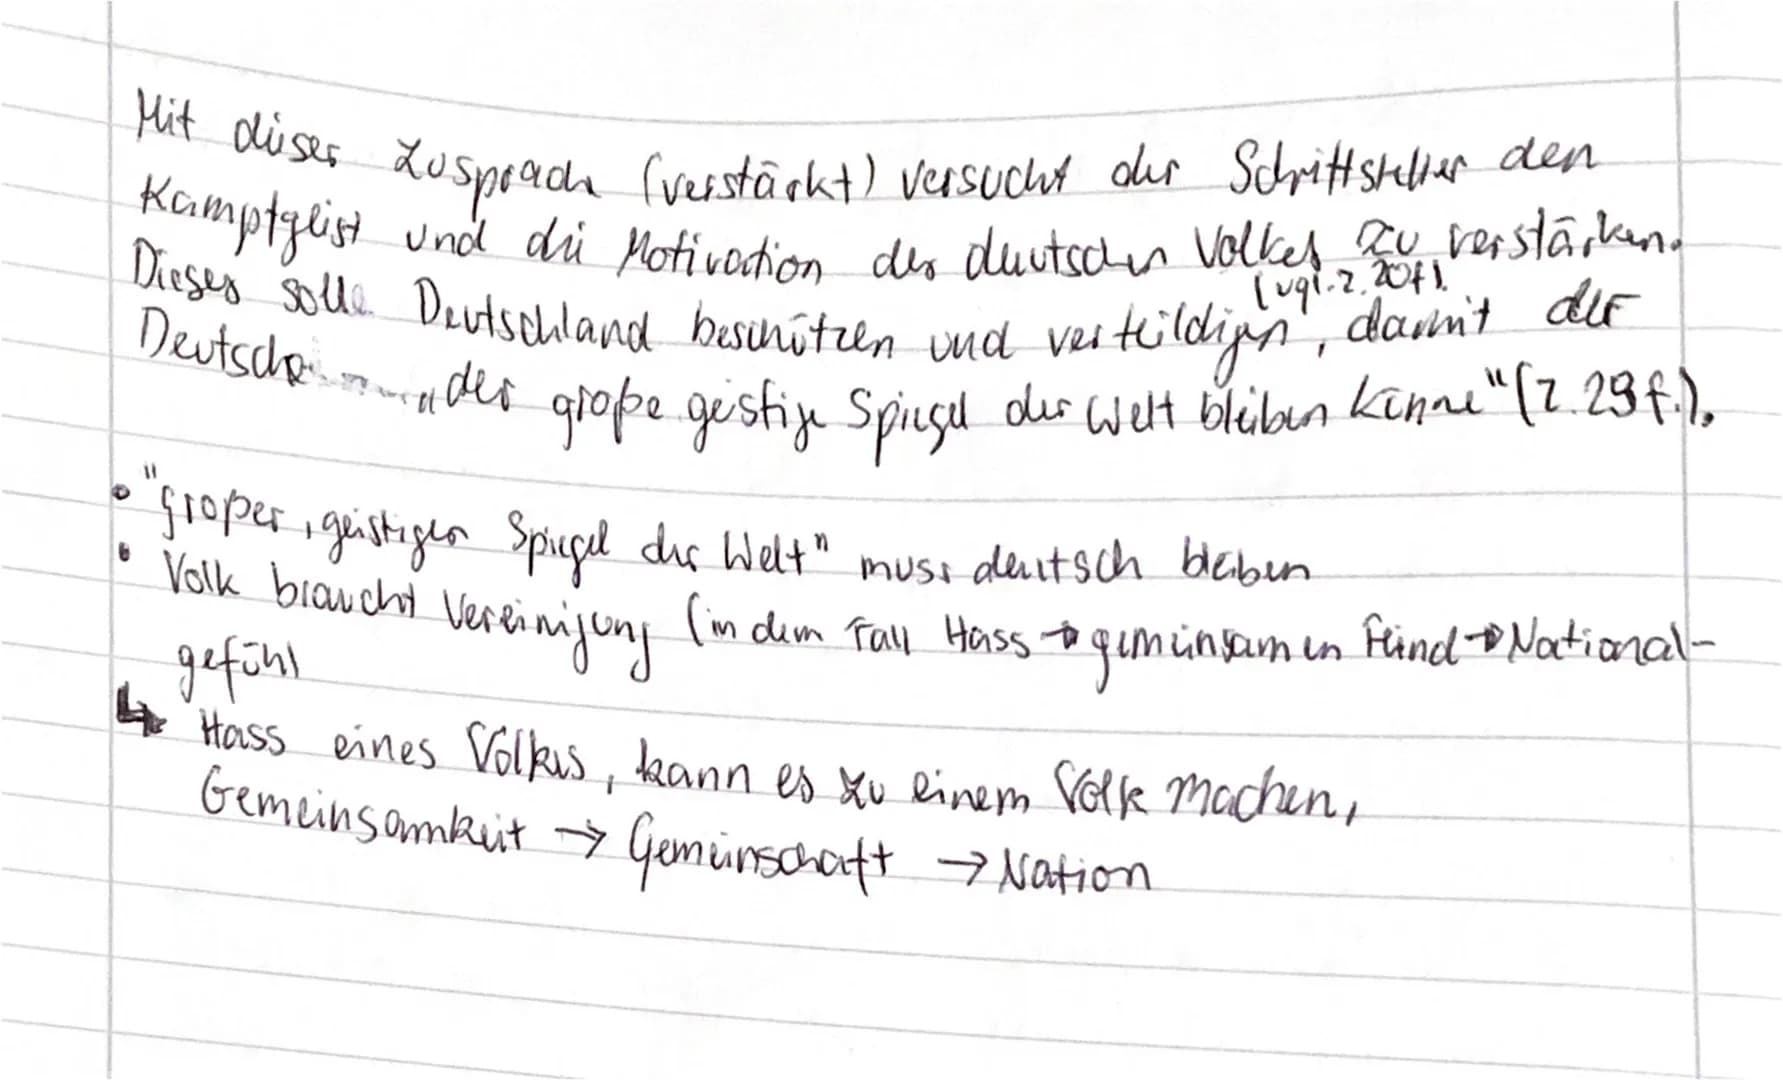 Mit dieser Zusprache (verstärkt) versucht der Schriftsteller den
Kampfgeist und die Motivation des deutschen Volkes zu verstärken.
(vgl. Z. 20f).
Dieses solle Deutschland beschützen und verteildigen, damit der
Deutsche "der große geistige Spiegel der Welt bleiben könne" (Z. 29f.).
• "großer, geistiger Spiegel der Welt" muss deutsch bleiben
• Volk braucht Vereinigung (in dem Fall Hass → gemeinsamen Feind → National-
gefühl
↳ Hass eines Volkes, kann es zu einem Volk machen,
Gemeinsamkeit → Gemeinschaft → Nation